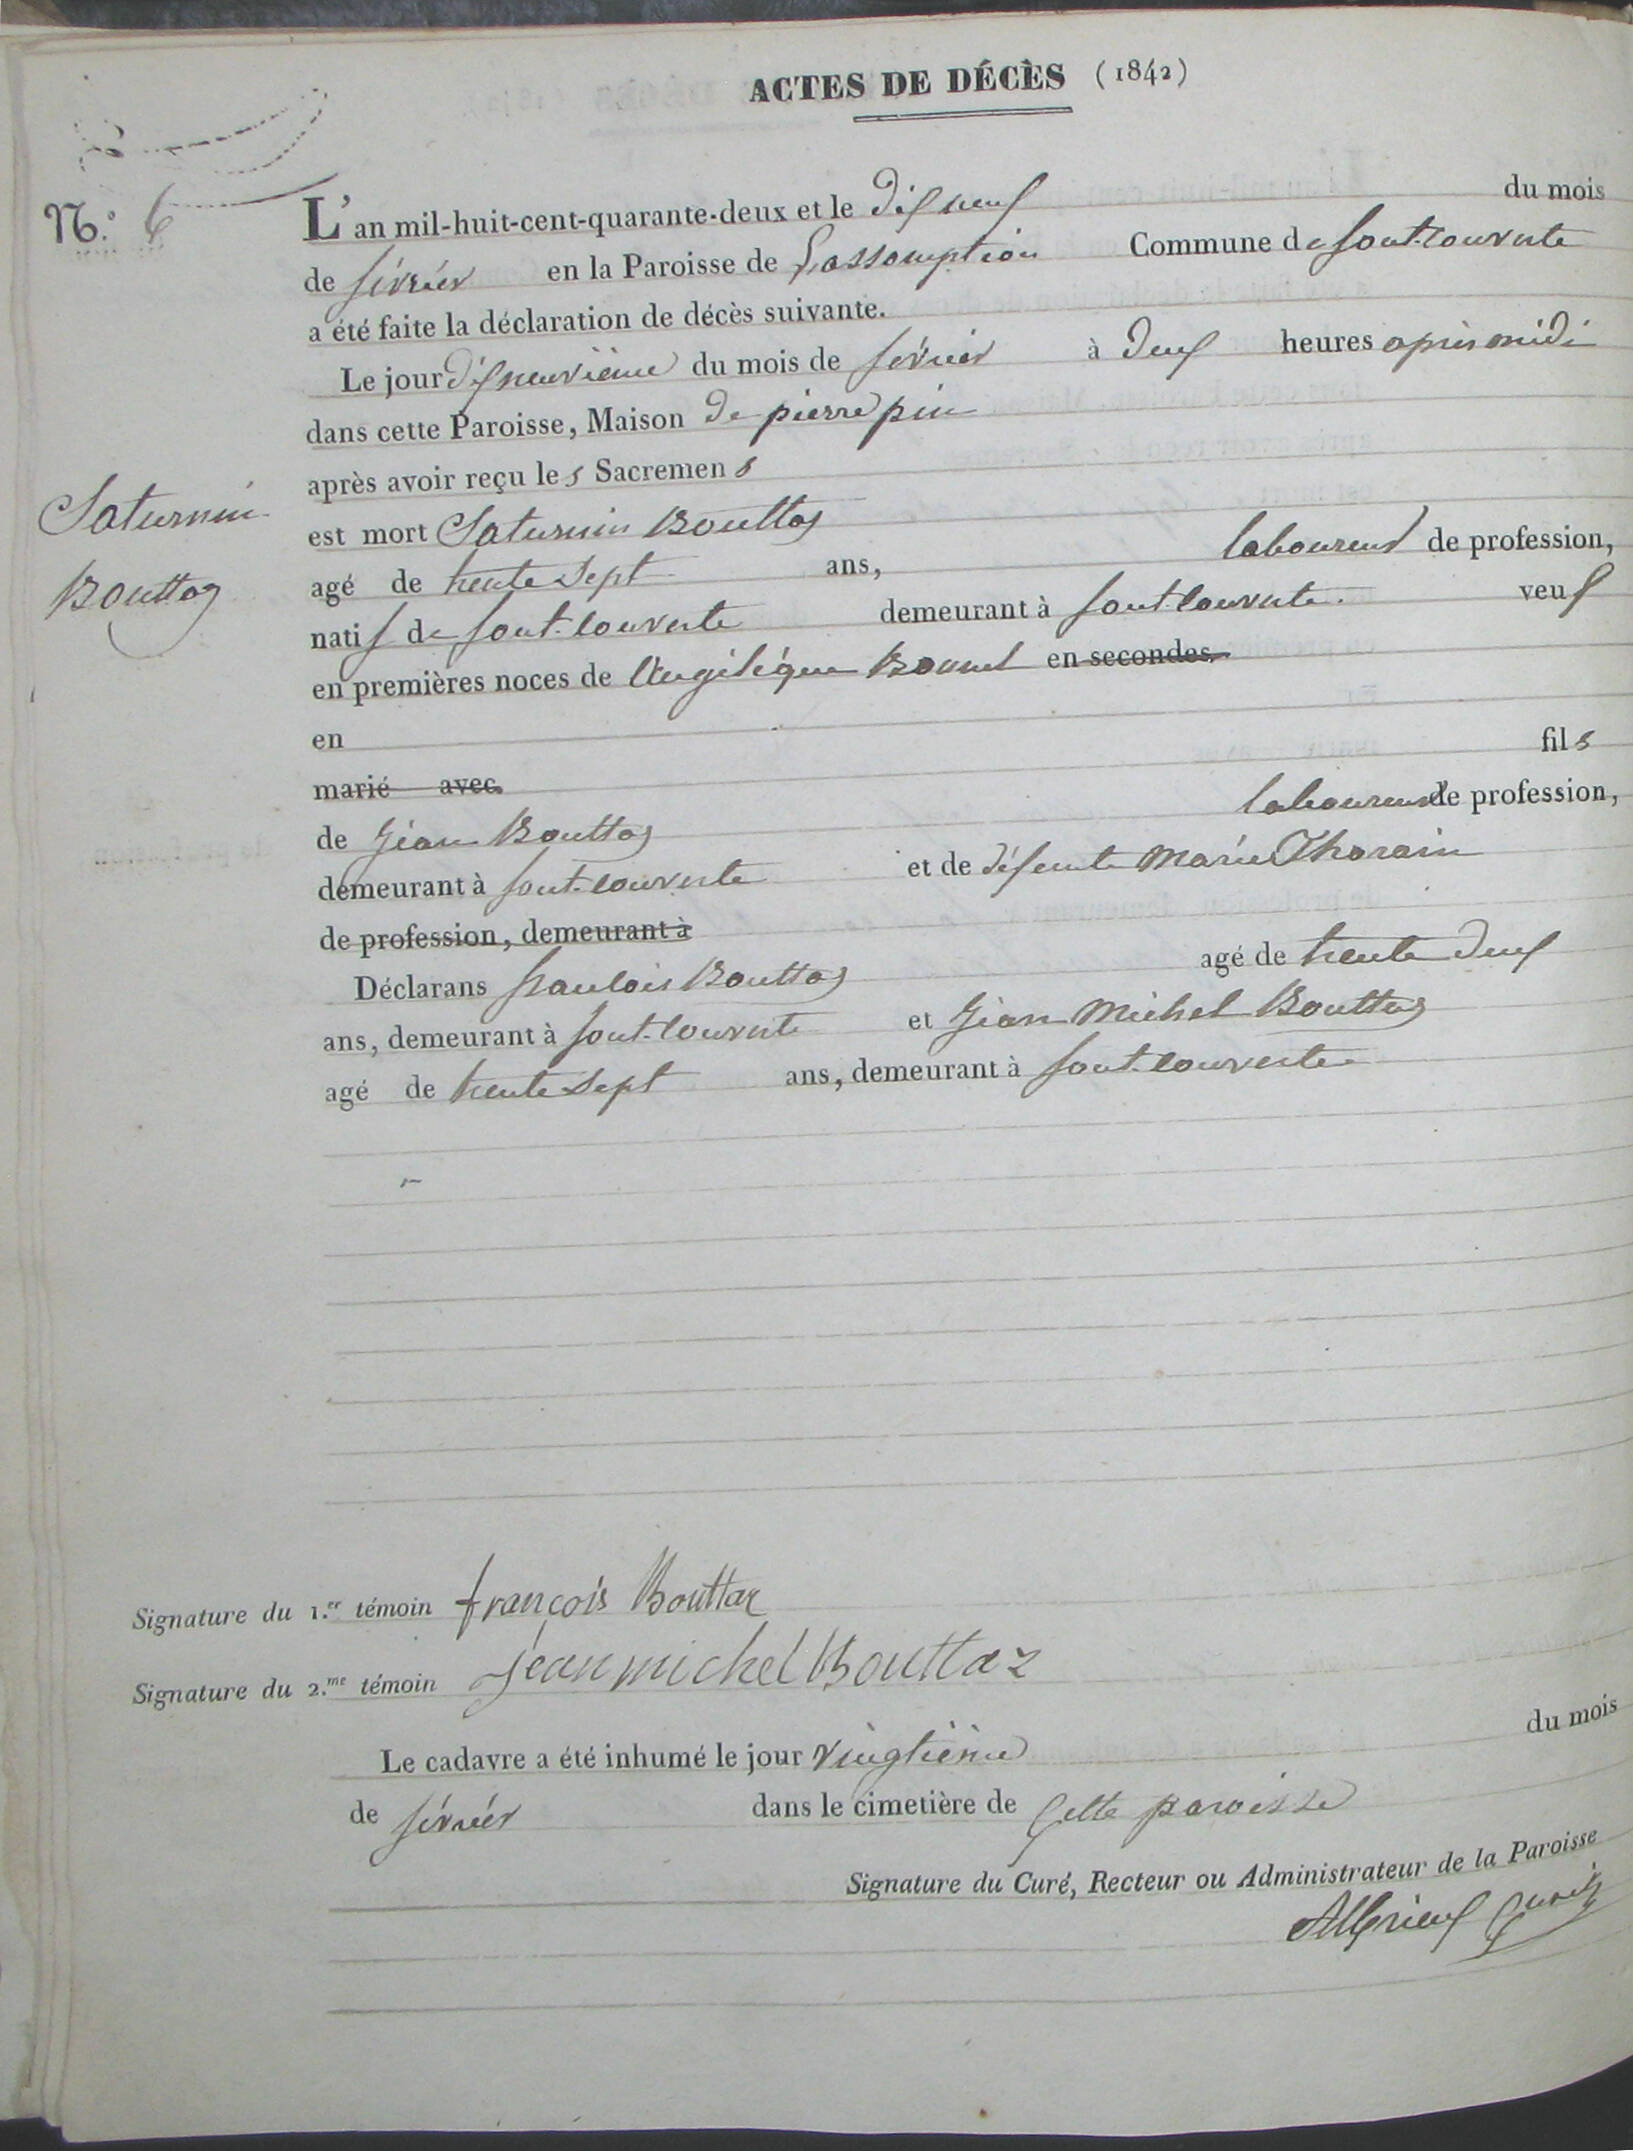 ACTES DE DÉCÈS (1842)
N.° 6
L'an mil-huit-cent-quarante-deux et le dixneuf du mois
de févriér en la Paroisse de L'assomption Commune de font-couverte
a été faite la déclaration de décès suivante.
Le jour dixneuvième du mois de février à deux heures aprés midi
dans cette Paroisse, Maison de pierre pin
après avoir reçu les Sacremens
Saturnin
Bouttaz
est mort Saturnin Bouttaz
agé de trente sept ans, laboureur de profession,
natif de font-couverte demeurant à font-couverte. veuf
en premières noces de Angéliqque Bonnel en secondes
en
marié avec
fils
de Jéan Bouttaz laboureur de profession,
demeurant à font-couverte et de défunte marie Thorain
de profession, demeurant à
Déclarans francois Bouttaz agé de trente deux
ans, demeurant à font-couverte et Jéan Michel Bouttaz
agé de trente sept ans, demeurant à font-couverte
Signature du 1.er témoin françois Bouttaz
Signature du 2.me témoin jean michel Bouttaz
Le cadavre a été inhumé le jour vingtième du mois
de févriér dans le cimetière de Cette paroisse
Signature du Curé, Recteur ou Administrateur de la Paroisse
Curé